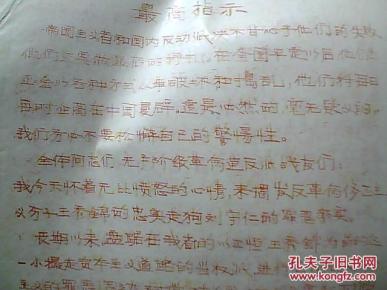 最高指示
帝国主义者和国内反动派决不甘心于他们的失败
他们还要做最后的挣扎,在全国平定以后他们也
还会以各种方式从事破坏和捣乱,他们将每日
每时企图在中国复辟。这是必然的,毫无疑义的,
我们务必不要松懈自己的警惕性。
全体同志们 无产阶级革命造反派战友们:
我今天怀着无比愤怒的心情,来揭发反革命修正主
义分子王 的忠实走狗刘宇仁的罪恶事实。
长期以来盘踞在我省的以 王 为首的
一小撮走资本主义道路的当权派,进行
孔夫子旧书网